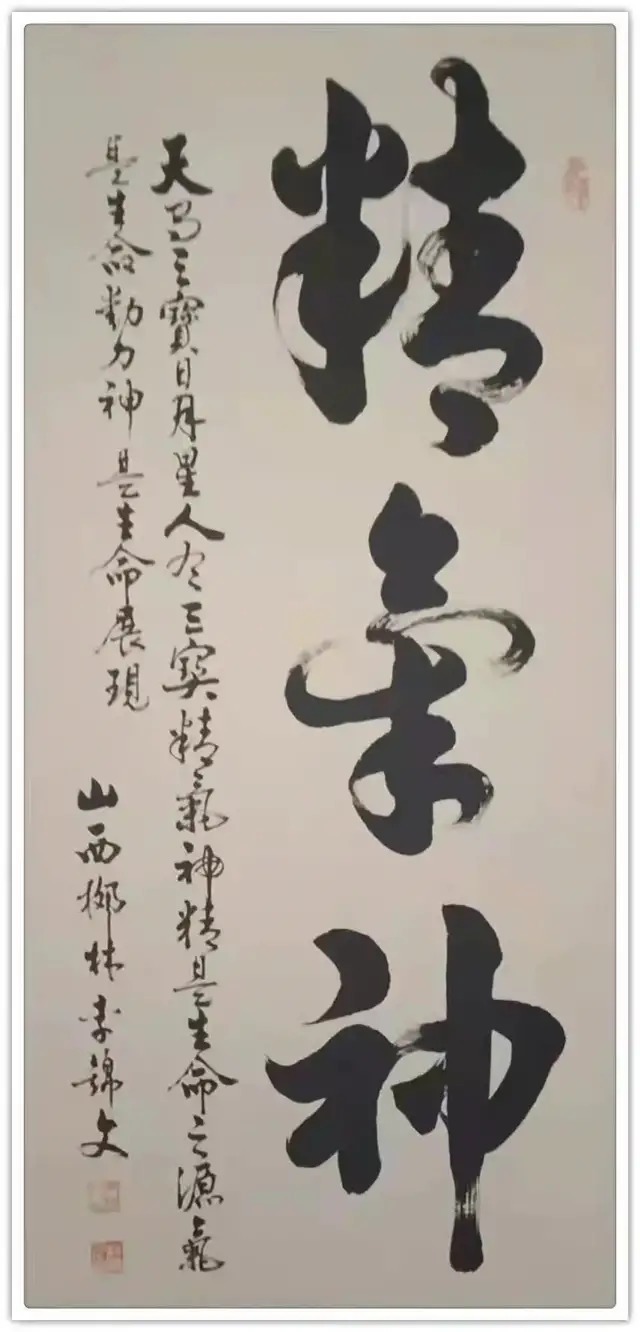 精氣神
天有三寶日月星人有三寶精氣神精是生命之源氣
是生命動力神是生命展現
山西柳林李錦文